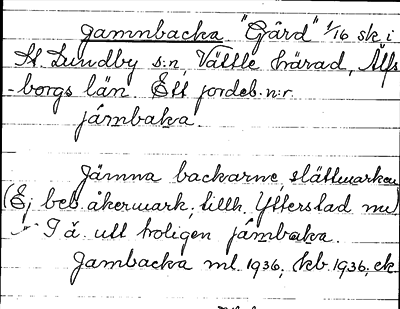 Jamnbacka "Gård" 1/16 sk. i
St. Lundby s:n, Vättle härad, Älfs-
-borgs län. Ett jordeb. n:r.
jámbaka.
Jämna backarne, slättmarken
(Ej beb. åkermark, tillh. Ytterstad m.)
I ä. utt troligen jámbaka.
Jambacka ml. 1936, kb. 1936, ek